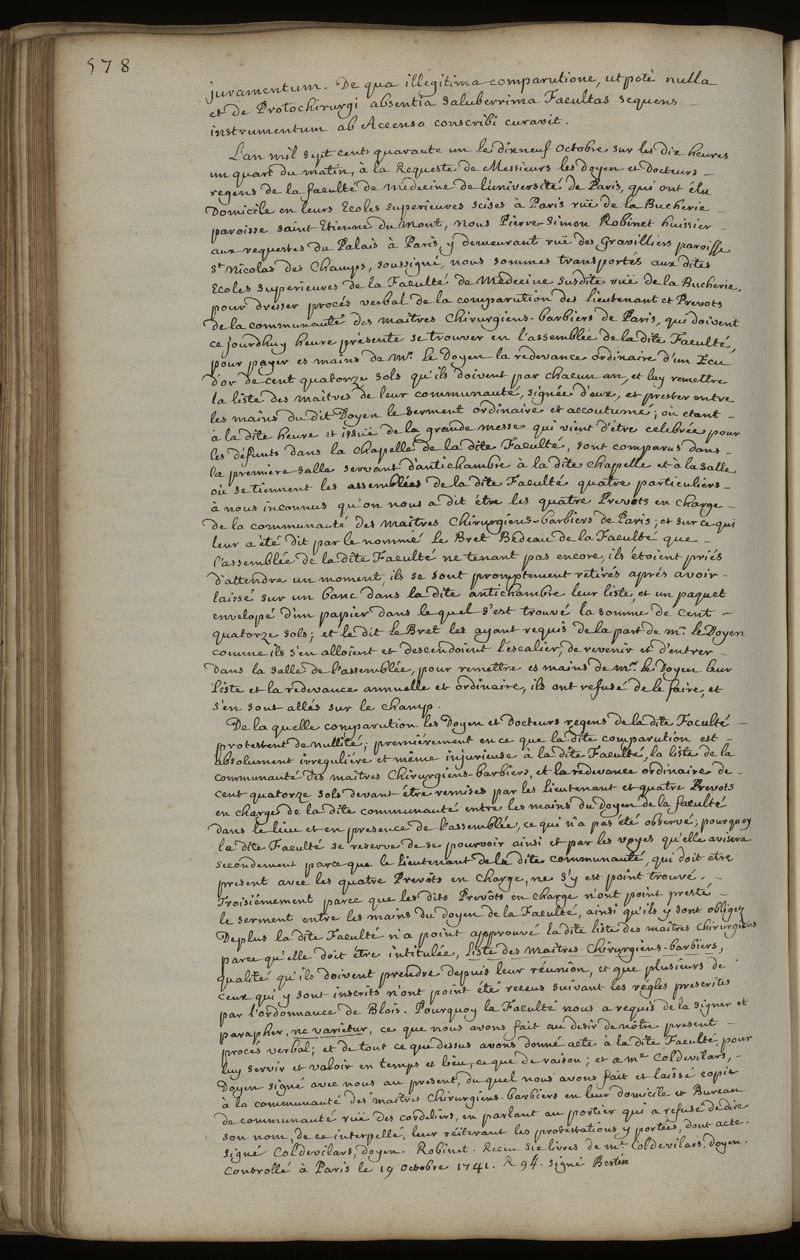 578
juramentum. De qua illegitima comparutione, utpoté nulla
et de Protochirurgi absentia saluberrima Facultas sequens
instrumentum ab Accenso conscribi curavit.
L'an mil sept cent quarante un le dixneuf octobre sur les dix heures
un quart du matin, à la Requeste de Messieurs les doyen et docteurs
regens de la faculté de médecine de l'université de Paris, qui ont élu
Domicile en leurs Ecoles superieures scises à Paris ruë de la Bucherie
paroisse saint Etienne du mont, nous Pierre-Simon Robinet huissier
aux requestes du Palais à Paris, y demeurant ruë des Gravilliers paroisse
St Nicolas des Champs, soussigné, nous sommes transportés aux dites
Ecoles superieures de la Faculté de Medecine susdite ruë de la Bucherie,
pour dresser procés verbal de la comparution des Lieutenant et Prevots
de la communauté des maîtres Chirurgiens-barbiers de Paris, qui doivent
ce jourdhuy heure présente se trouver en l'assemblée de la dite Faculté,
pour payer es mains de Mr. le Doyen la redevance ordinaire d'un Ecu
d'or de cent quatorze sols qu'ils doivent par chacun an, et luy remettre
la liste des maîtres de leur communauté, signée d'eux, et prester entre
les mains du dit Doyen le serment ordinaire et accoutumé; où etant
à la dite heure et issuë de la grande messe qui vient d'être celebrée pour
les défunts dans la chapelle de la dite Faculté, sont comparus dans
la première salle servant d'antichambre à la dite chapelle et à la salle
où se tiennent les assemblées de la dite Faculté quatre particuliers
à nous inconnus qu'on nous a dit étre les quatre Prevots en charge
de la communauté des maîtres Chirurgiens-barbiers de Paris; et sur ce qui
leur a été dit par le nommé le Bret Bedeau de la Faculté que
l'assemblée de la dite Faculté ne tenant pas encore, ils étoient priés
d'attendre un moment, ils se sont promptement retirés aprés avoir
laissé sur un banc dans la dite antichambre leur liste, et un paquet
enveloppé d'un papier dans le quel s'est trouvé la somme de cent
quatorze sols; et le dit le Bret les ayant requis de la part de mr. le Doyen
comme ils s'en alloient et descendoient l'escalier, de revenir et d'entrer
dans la salle de l'assemblée, pour remettre es mains de mr. le Doyen leur
liste et la redevance annuelle et ordinaire, ils ont refusé de le faire, et
s'en sont allés sur le champ.
De la quelle comparution les Doyen et docteurs regens de la dite Faculté
protestent de nullité; premiérement en ce que la dite comparution est
absolument irreguliére et même injurieuse à la dite Faculté, la liste de la
communauté des maîtres Chirurgiens-barbiers, et la redevance ordinaire de
cent quatorze sols devant être remises par les Lieutenant et quatre Prevots
en charge de la dite communauté entre les mains du Doyen de la faculté
dans le lieu et en presence de l'assemblée, ce qui n'a pas été observé, pourquoy
la dite Faculté se reserve de se pourvoir ainsi et par les voyes qu'elle avisera
secondement parce que le lieutenant de la dite communauté, qui doit etre
present avec les quatre Prevots en Charge, ne s'y est point trouvé.
Troisiémement parce que les dits Prevots en charge n'ont point presté
le serment entre les mains du doyen de la Faculté, ainsi qu'ils y sont obligez
Deplus la dite Faculté n'a point approuvé la dite liste des maitres chirurgiens
parce qu'elle doit étre intitulée, liste des maitres Chirurgiens-barbiers,
qualité qu'ils doivent prendre depuis leur réunion, et que plusieurs de
ceux qui y sont inscrits n'ont point été receus suivant les régles prescrites
par l'ordonnance de Blois. Pourquoy la Faculté nous a requis de la signer et
parapher, ne varietur, ce que nous avons fait au desir de nôtre present
procés verbal; et de tout ce que dessus avons donné acte à la dite Faculté, pour
luy servir et valoir en temps et lieu, ce que de raison; et a mr Coldevilars,
Doyen signé avec nous au present, du quel nous avons fait et laissé copie
à la communauté des maitres Chirurgiens-barbiers en leur domicile et Bureau
de communauté ruë des cordeliers, en parlant au portier qui a refusé de dire
son nom, de ce interpellé, leur réiterant les protestations y portées, dont acte.
signé Coldevilars, doyen. Robinet. Receu six livres de mr. Coldevilars, doyen.
Controllé à Paris le 19 octobre 1741. R 9s. signé Bertin